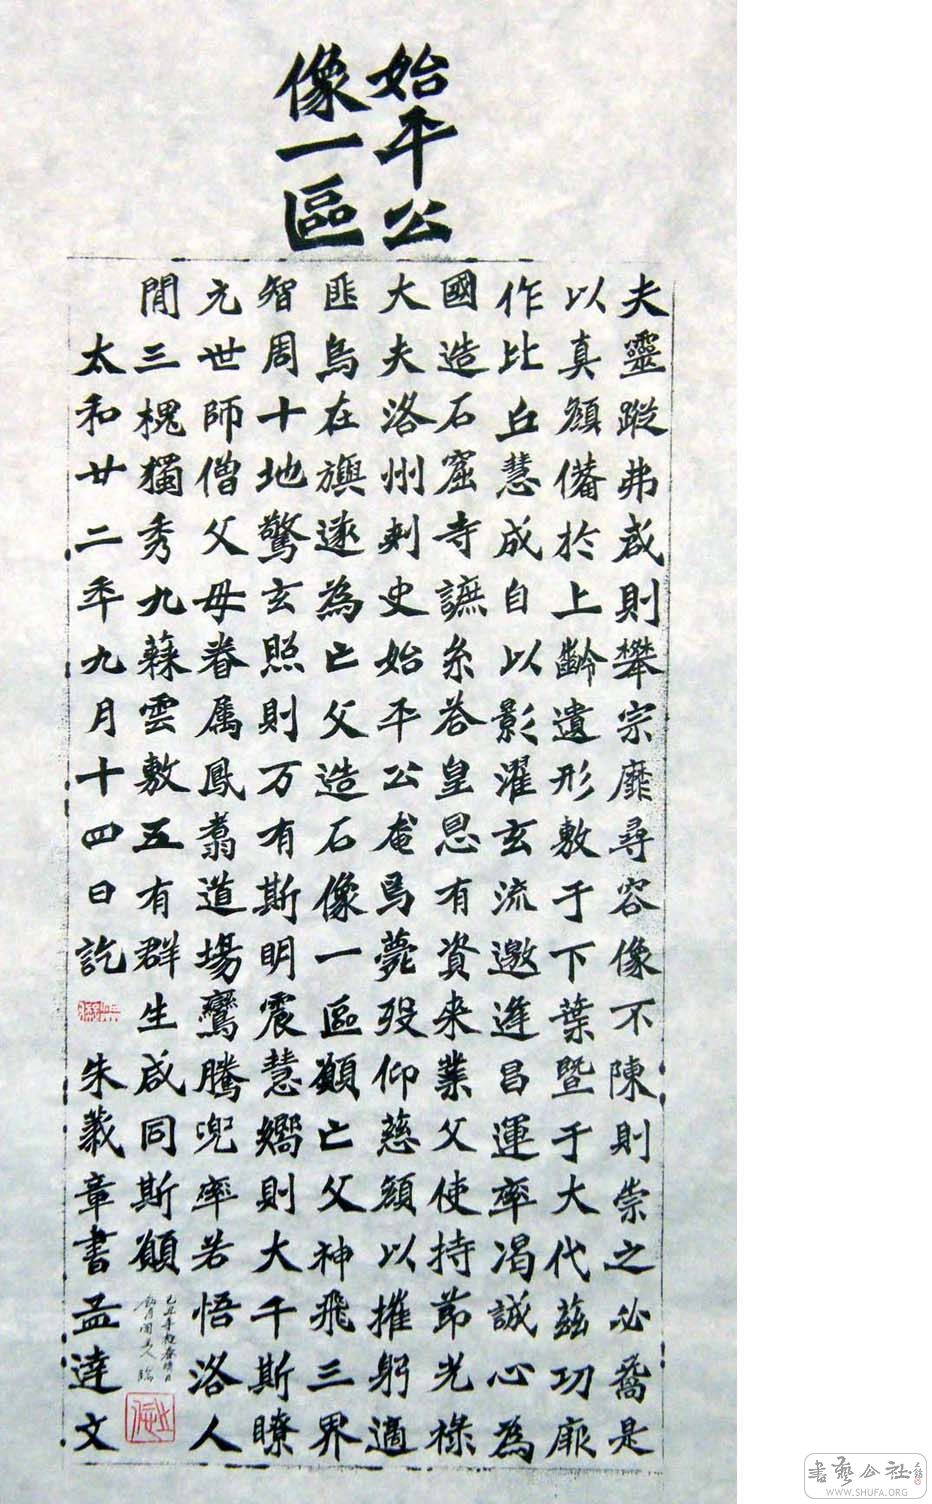 始平公
像一區
夫靈蹤弗啟則攀宗靡尋容像不陳則崇之必喬是
以真顏備於上齡遺形敷于下葉暨于大代茲功厥
作比丘慧成自以影濯玄流邀逢昌運率渴誠心為
國造石窟寺䜆系荅皇恩有資来業父使持節光祿
大夫洛州刺史始平公奄焉薨歿仰慈顏以摧躬適
匪烏在㒜遂為亡父造石像一區願亡父神飛三界
智周十地驚玄照則万有斯明震慧嚮則大千斯瞭
元世師僧父母眷属鳳翥道場鸞騰兜率若悟洛人
閒三槐獨秀九蕀雲敷五有群生咸同斯願
太和廿二年九月十四日訖
朱義章書孟達文
書藝公社
WWW.SHUFA.ORG